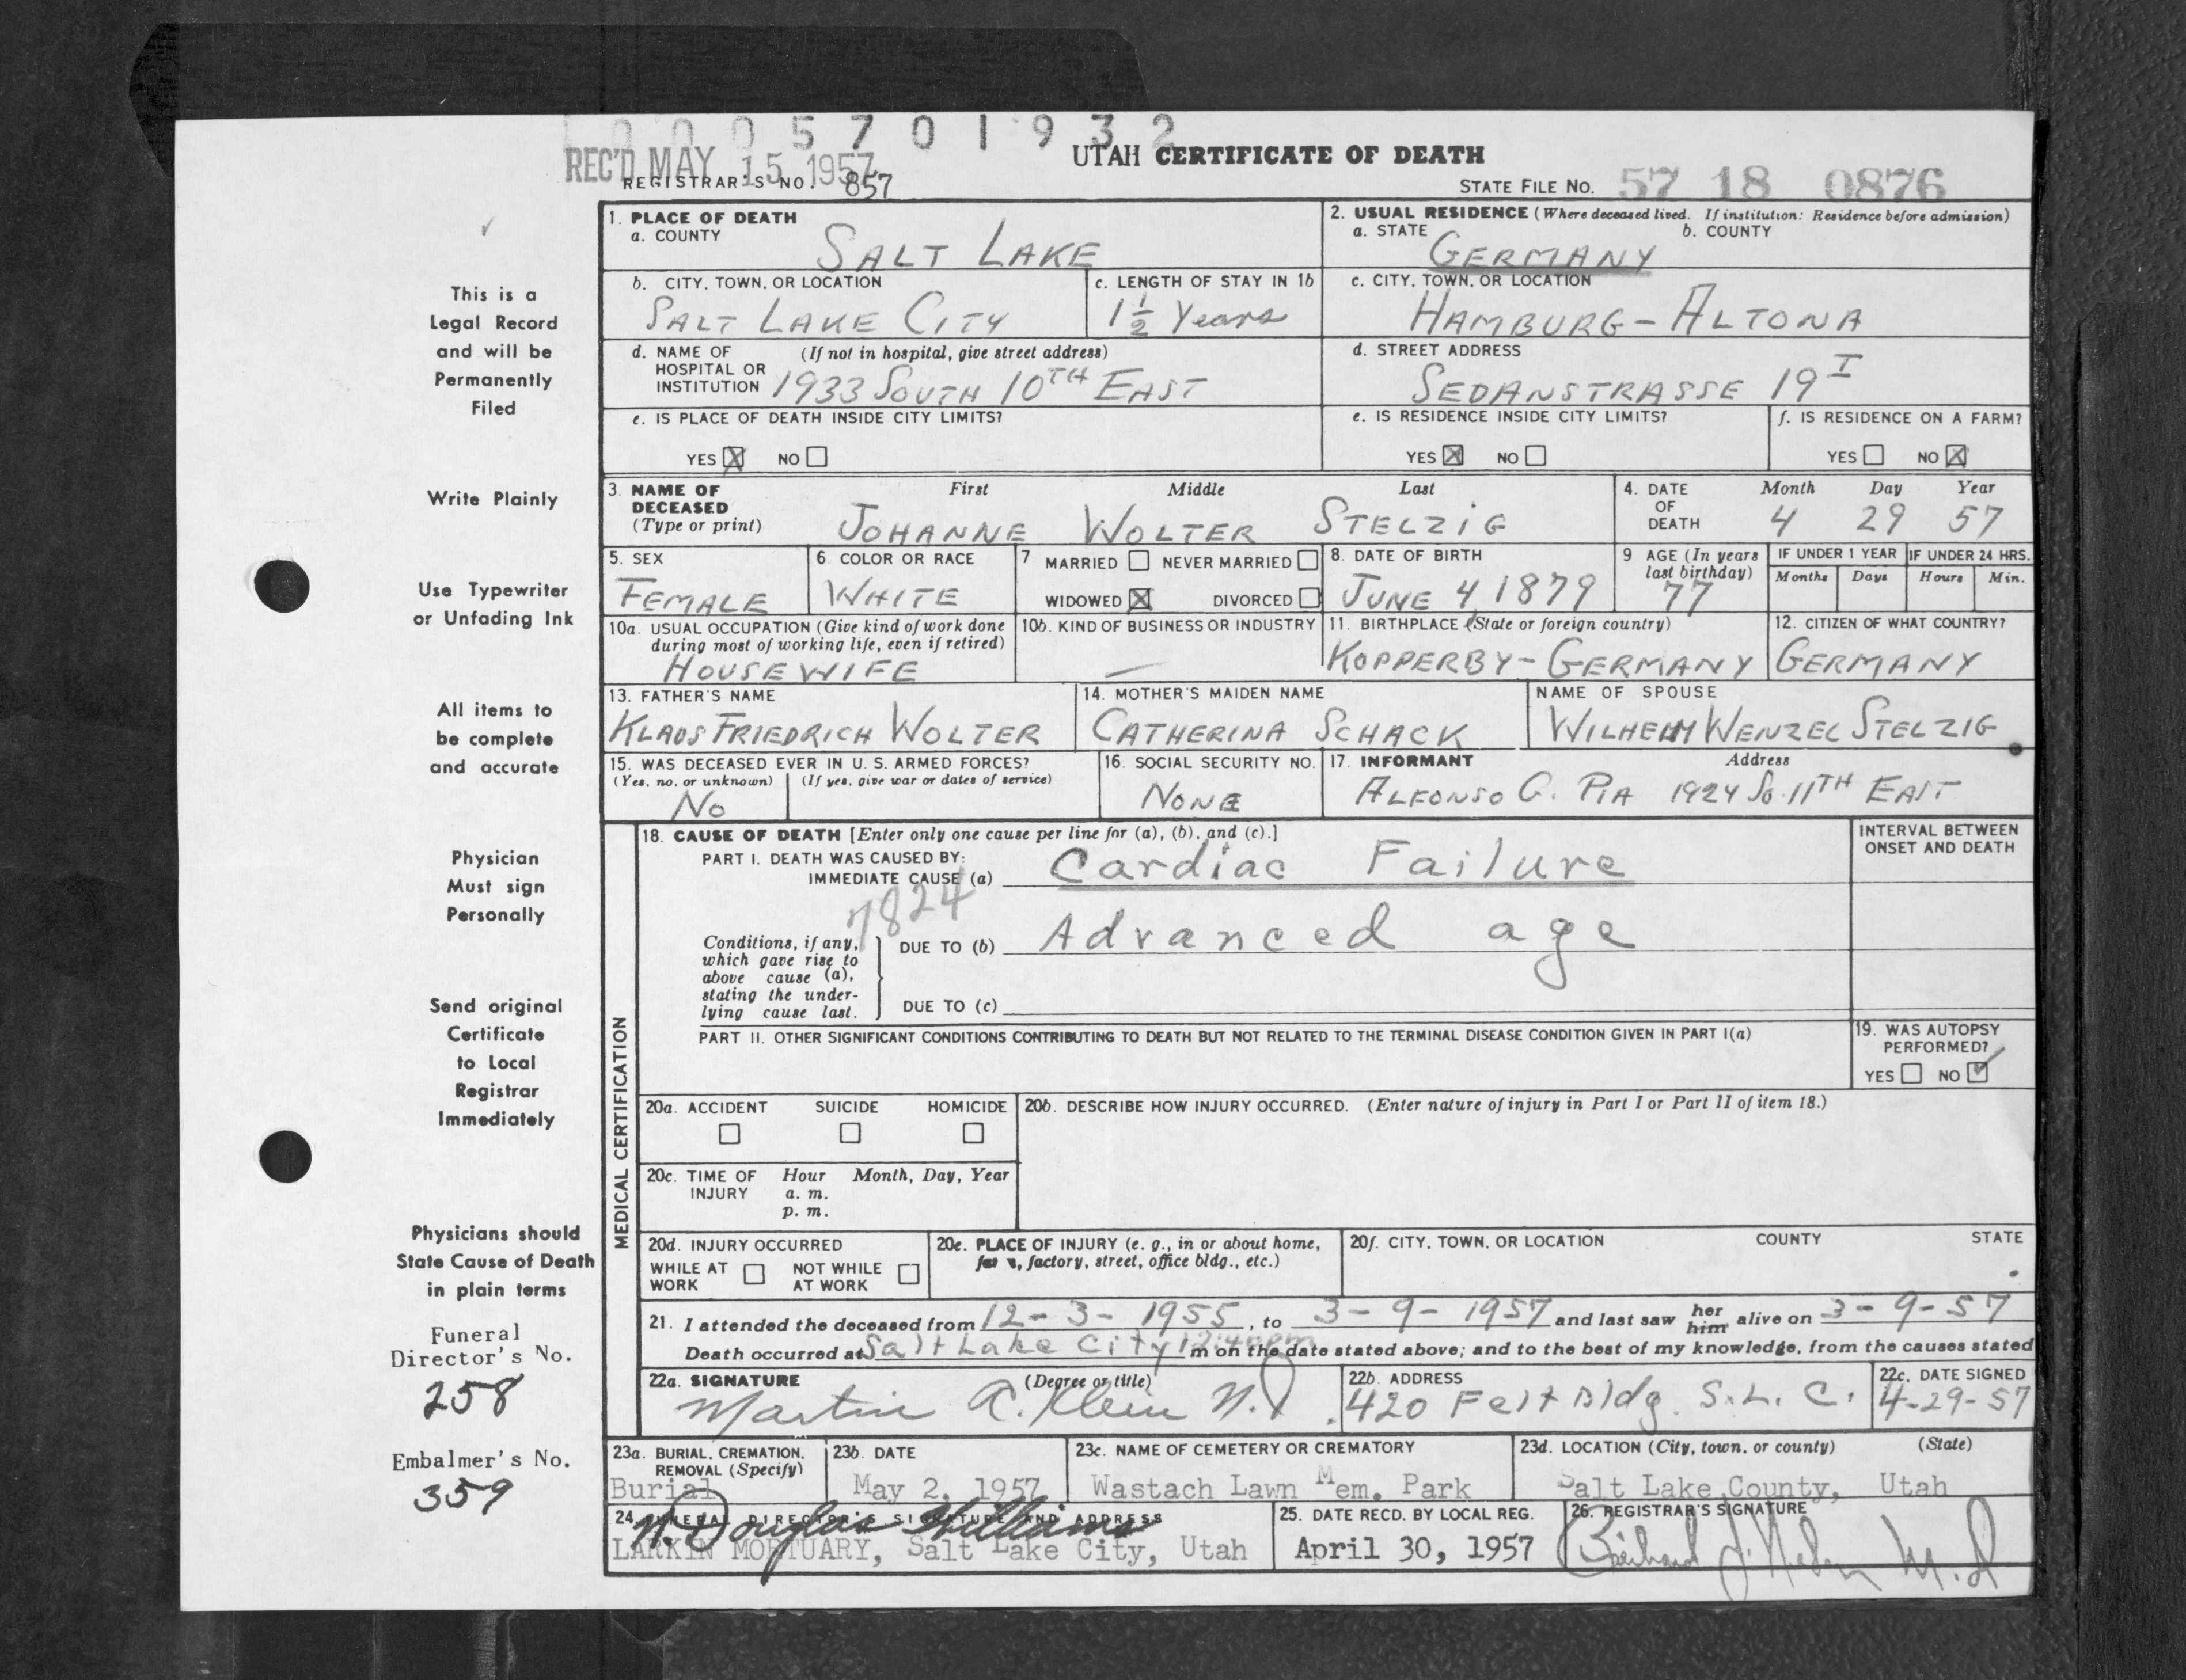 0 0 0 5 7 0 1 9 3 2
REC'D MAY 15 1957
UTAH CERTIFICATE OF DEATH
REGISTRAR'S NO. 857
STATE FILE NO. 57 18 0876
This is a
Legal Record
and will be
Permanently
Filed
Write Plainly
Use Typewriter
or Unfading Ink
All items to
be complete
and accurate
Physician
Must sign
Personally
Send original
Certificate
to Local
Registrar
Immediately
Physicians should
State Cause of Death
in plain terms
Funeral
Director's No.
258
Embalmer's No.
359
1. PLACE OF DEATH
a. COUNTY
SALT LAKE
2. USUAL RESIDENCE (Where deceased lived. If institution: Residence before admission)
a. STATE b. COUNTY
GERMANY
b. CITY, TOWN, OR LOCATION
SALT LAKE CITY
c. LENGTH OF STAY IN 1b
1½ Years
c. CITY, TOWN, OR LOCATION
HAMBURG-ALTONA
d. NAME OF (If not in hospital, give street address)
HOSPITAL OR
INSTITUTION 1933 SOUTH 10TH EAST
d. STREET ADDRESS
SEDANSTRASSE 19 I
e. IS PLACE OF DEATH INSIDE CITY LIMITS?
YES X NO
e. IS RESIDENCE INSIDE CITY LIMITS?
YES X NO
f. IS RESIDENCE ON A FARM?
YES NO X
3. NAME OF First Middle Last
DECEASED
(Type or print) JOHANNE WOLTER STELZIG
4. DATE Month Day Year
OF
DEATH 4 29 57
5. SEX
FEMALE
6. COLOR OR RACE
WHITE
7 MARRIED NEVER MARRIED
WIDOWED X DIVORCED
8. DATE OF BIRTH
JUNE 4 1879
9 AGE (In years
last birthday)
77
IF UNDER 1 YEAR IF UNDER 24 HRS.
Months Days Hours Min.
10a. USUAL OCCUPATION (Give kind of work done
during most of working life, even if retired)
HOUSEWIFE
10b. KIND OF BUSINESS OR INDUSTRY
—
11. BIRTHPLACE (State or foreign country)
KOPPERBY-GERMANY
12. CITIZEN OF WHAT COUNTRY?
GERMANY
13. FATHER'S NAME
KLAUS FRIEDRICH WOLTER
14. MOTHER'S MAIDEN NAME
CATHERINA SCHACK
NAME OF SPOUSE
WILHELM WENZEL STELZIG
15. WAS DECEASED EVER IN U. S. ARMED FORCES?
(Yes, no, or unknown) (If yes, give war or dates of service)
NO
16. SOCIAL SECURITY NO.
NONE
17. INFORMANT Address
ALFONSO G. PIA 1924 So. 11TH EAST
MEDICAL CERTIFICATION
18. CAUSE OF DEATH [Enter only one cause per line for (a), (b), and (c).]
INTERVAL BETWEEN
ONSET AND DEATH
PART I. DEATH WAS CAUSED BY:
IMMEDIATE CAUSE (a) Cardiac Failure
7824
Conditions, if any,
which gave rise to
above cause (a),
stating the under-
lying cause last.
DUE TO (b) Advanced age
DUE TO (c)
PART II. OTHER SIGNIFICANT CONDITIONS CONTRIBUTING TO DEATH BUT NOT RELATED TO THE TERMINAL DISEASE CONDITION GIVEN IN PART I(a)
19. WAS AUTOPSY
PERFORMED?
YES NO ✓
20a. ACCIDENT SUICIDE HOMICIDE
20b. DESCRIBE HOW INJURY OCCURRED. (Enter nature of injury in Part I or Part II of item 18.)
20c. TIME OF Hour Month, Day, Year
INJURY a. m.
p. m.
20d. INJURY OCCURRED
WHILE AT NOT WHILE
WORK AT WORK
20e. PLACE OF INJURY (e. g., in or about home,
farm, factory, street, office bldg., etc.)
20f. CITY, TOWN, OR LOCATION COUNTY STATE
21. I attended the deceased from 12-3-1955, to 3-9-1957 and last saw her him alive on 3-9-57
Death occurred at Salt Lake City 12:40 pm m on the date stated above; and to the best of my knowledge, from the causes stated
22a. SIGNATURE (Degree or title)
Martin A. Klein M.D.
22b. ADDRESS
420 Felt Bldg. S.L.C.
22c. DATE SIGNED
4-29-57
23a. BURIAL, CREMATION,
REMOVAL (Specify)
Burial
23b. DATE
May 2, 1957
23c. NAME OF CEMETERY OR CREMATORY
Wastach Lawn Mem. Park
23d. LOCATION (City, town, or county) (State)
Salt Lake County, Utah
24. FUNERAL DIRECTOR'S SIGNATURE AND ADDRESS
W. Douglas Williams
LARKIN MORTUARY, Salt Lake City, Utah
25. DATE RECD. BY LOCAL REG.
April 30, 1957
26. REGISTRAR'S SIGNATURE
M.D